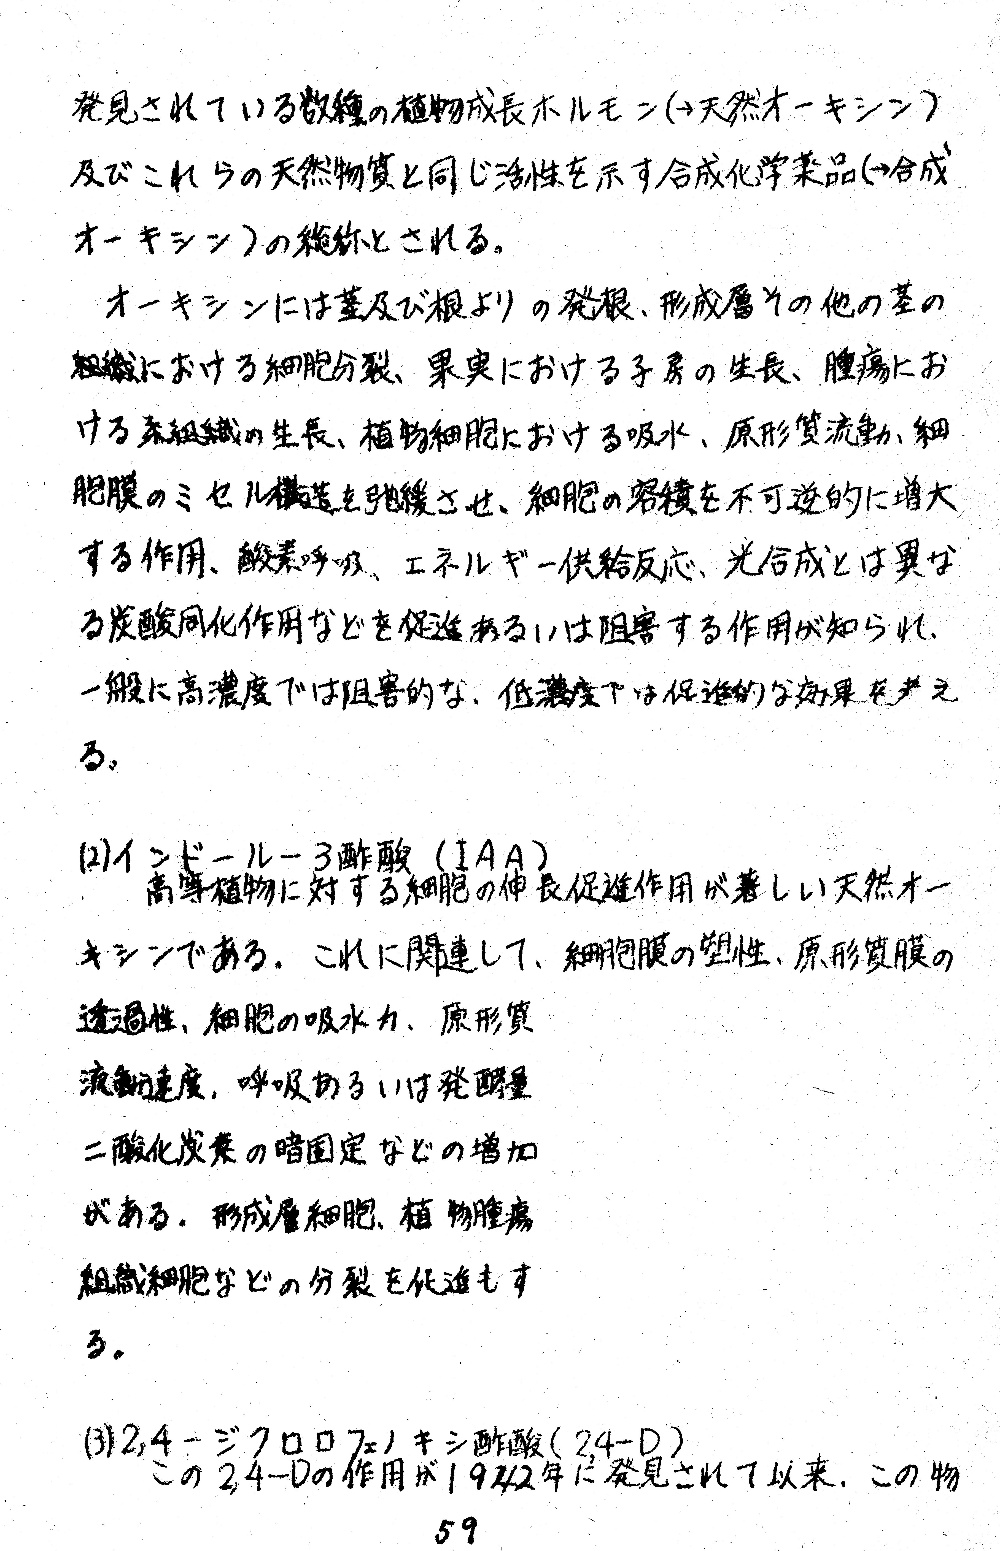 発見されている数種の植物成長ホルモン(→天然オーキシン)
及びこれらの天然物質と同じ活性を示す合成化学薬品(→合成
オーキシン)の総称とされる。
オーキシンには茎及び根よりの発根、形成層その他の茎の
組織における細胞分裂、果実における子房の生長、腫瘍にお
ける組織の生長、植物細胞における吸水、原形質流動、細
胞膜のミセル構造を弛緩させ、細胞の容積を不可逆的に増大
する作用、酸素呼吸、エネルギー供給反応、光合成とは異な
る炭酸同化作用などを促進あるいは阻害する作用が知られ、
一般に高濃度では阻害的な、低濃度では促進的な効果を考え
る。
(2)インドール-3酢酸(IAA)
高等植物に対する細胞の伸長促進作用が著しい天然オー
キシンである。これに関連して、細胞膜の塑性、原形質膜の
透過性、細胞の吸水力、原形質
流動速度、呼吸あるいは発酵量
二酸化炭素の暗固定などの増加
がある。形成層細胞、植物腫瘍
組織細胞などの分裂を促進もす
る。
(3)2,4-ジクロロフェノキシ酢酸(2,4-D)
この2,4-Dの作用が1942年に発見されて以来、この物
59